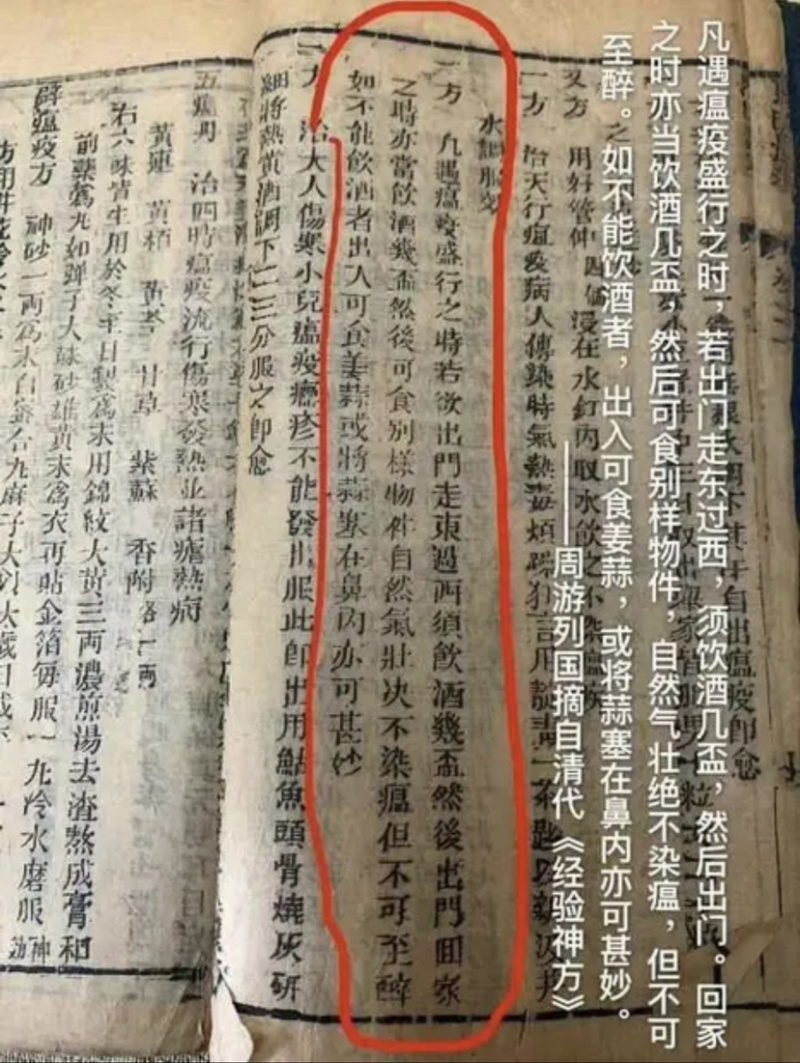 凡遇瘟疫盛行之时，若出门走东过西，须饮酒几盃，然后出门。回家
之时亦当饮酒几盃，然后可食别样物件，自然气壮绝不染瘟，但不可
至醉。如不能饮酒者，出入可食姜蒜，或将蒜塞在鼻内亦可甚妙。
——周游列国摘自清代《经验神方》
自出瘟疫即愈
又方 用好管仲 浸在水缸內取水飲之不染瘟疫
一方 治天行瘟疫病人傳染時氣熱毒煩躁狂言用靛青一茶匙以新汲井
水調服
一方 凡遇瘟疫盛行之時若欲出門走東過西須飲酒幾盃然後出門回家
之時亦當飲酒幾盃然後可食別樣物件自然氣壯决不染瘟但不可至醉
如不能飲酒者出入可食姜蒜或將蒜塞在鼻內亦可甚妙
一方 治大人傷寒小兒瘟疫癮疹不能發出服此即出用鮎魚頭骨燒灰研
細將熱黃酒調下二三分服之即愈
五瘟丹 治四時瘟疫流行傷寒發熱並諸瘧熱病
黃連 黃栢 黃芩 甘草 紫蘇 香附 各一兩
右六味皆生用於冬至日製爲末用錦紋大黃三兩濃煎湯去渣熬成膏和
前藥爲丸如彈子大硃砂雄黃末爲衣再貼金箔每服一丸冷水磨服神効
辟瘟疫方 神砂一兩爲末白蜜合丸麻子大以太歲日或